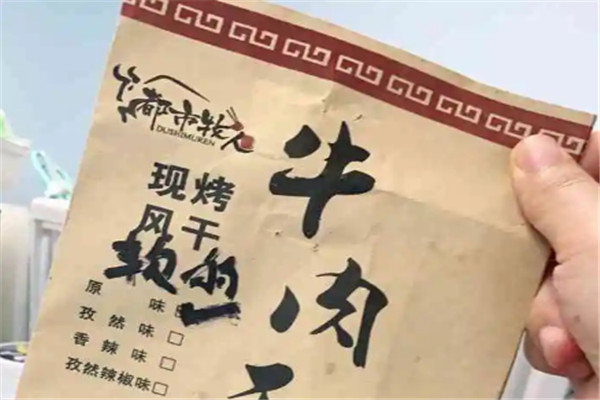 都市牧人
DUSHIMUREN
现烤
风干
软的
牛肉
原 味□
孜然味□
香辣味□
孜然辣椒味□